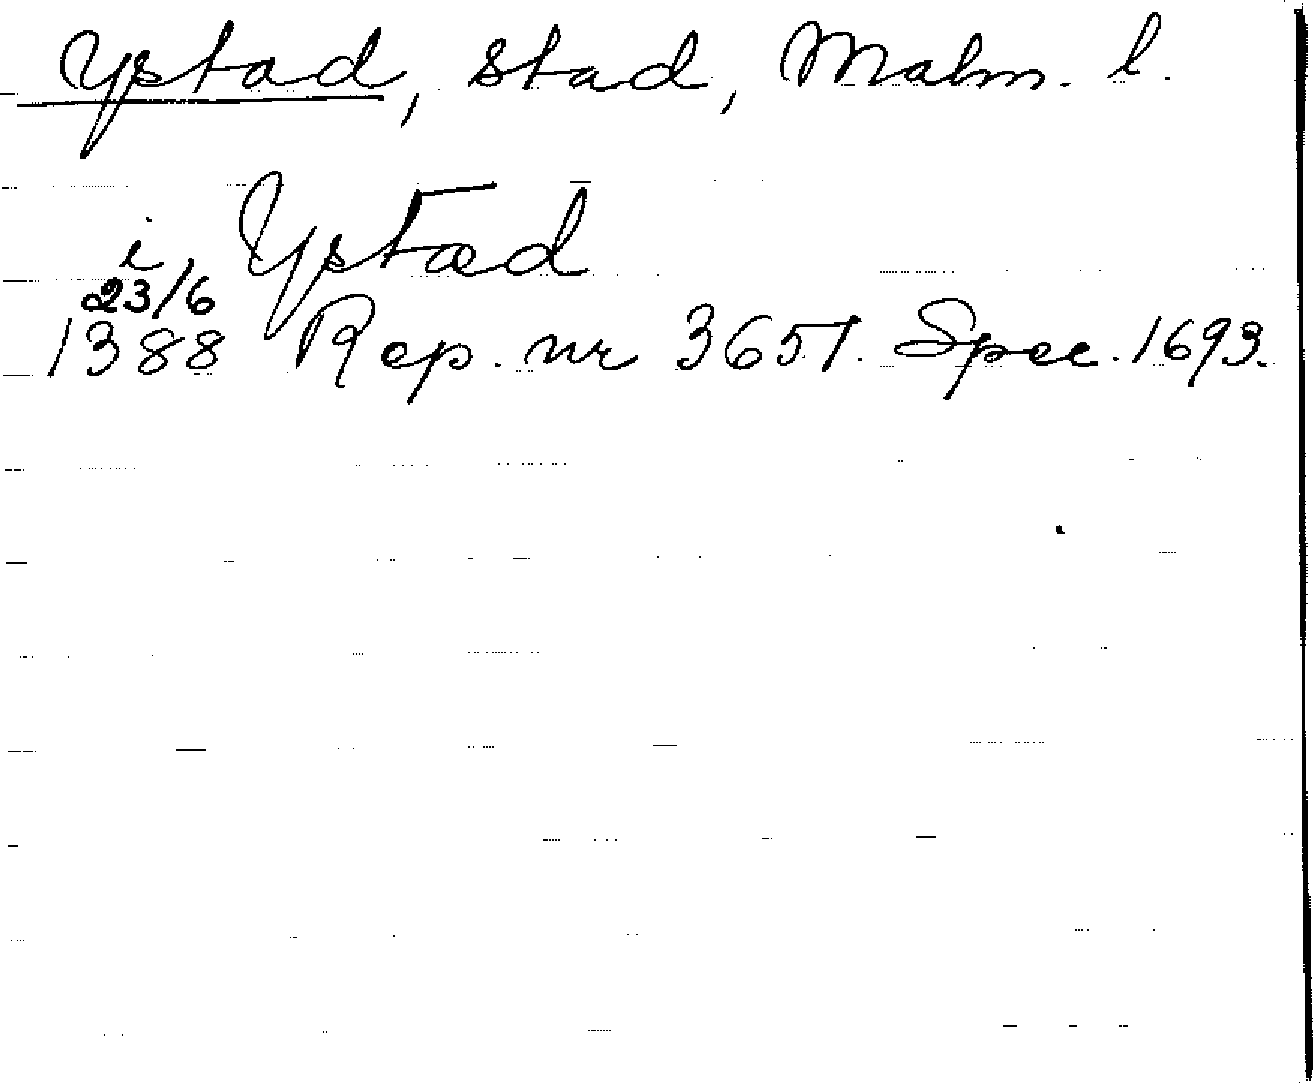 Ystad, stad, Malm. l.
i Ystæd
23/6
1388 Rep. nr 3657. Spec. 1693.